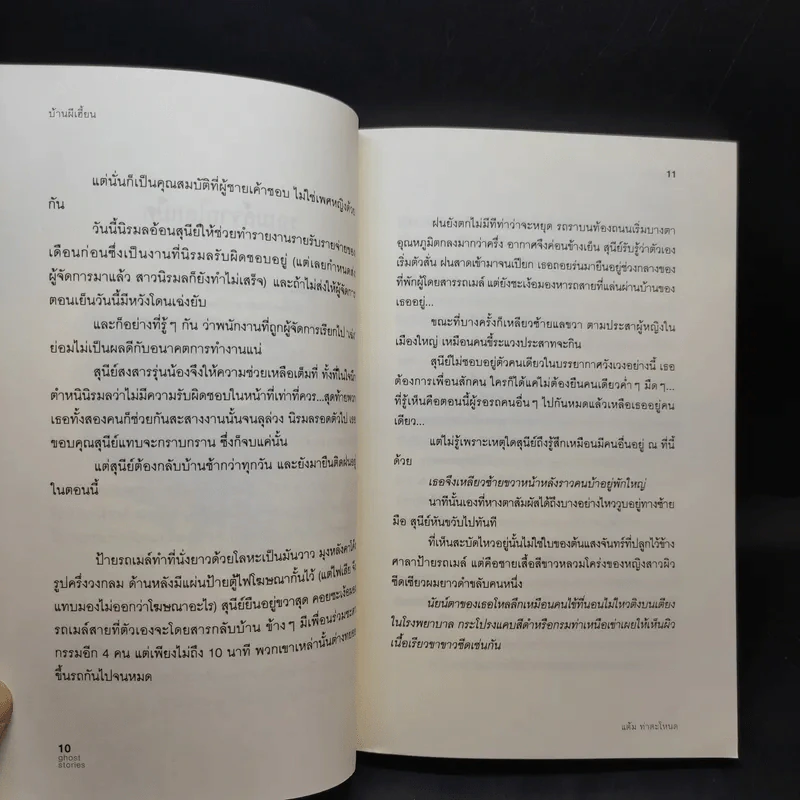 บ้านผีเฮี้ยน
แต่นั่นก็เป็นคุณสมบัติที่ผู้ชายเค้าชอบ ไม่ใช่เพศหญิงด้วย
กัน
วันนี้นิรมลอ้อนสุนีย์ให้ช่วยทำรายงานรายรับรายจ่ายของ
เดือนก่อนซึ่งเป็นงานที่นิรมลรับผิดชอบอยู่ (แต่เลยกำหนดส่ง
ผู้จัดการมาแล้ว สาวนิรมลก็ยังทำไม่เสร็จ) และถ้าไม่ส่งให้ผู้จัดการ
ตอนเย็นวันนี้มีหวังโดนเฉ่งยับ
และก็อย่างที่รู้ๆ กัน ว่าพนักงานที่ถูกผู้จัดการเรียกไป
ย่อมไม่เป็นผลดีกับอนาคตการทำงานแน่
สุนีย์สงสารรุ่นน้องจึงให้ความช่วยเหลือเต็มที่ ทั้งที่ในใจนึก
ตำหนินิรมลว่าไม่มีความรับผิดชอบในหน้าที่เท่าที่ควร...สุดท้ายพวก
เธอทั้งสองคนก็ช่วยกันสะสางงานนั้นจนลุล่วง นิรมลรอดตัวไป เธอ
ขอบคุณสุนีย์แทบจะกราบกราน ซึ่งก็จบแค่นั้น
แต่สุนีย์ต้องกลับบ้านช้ากว่าทุกวัน และยังมายืนติดฝนอยู่
ในตอนนี้
ป้ายรถเมล์ทำที่นั่งยาวด้วยโลหะเป็นมันวาว มุงหลังคาโค้ง
รูปครึ่งวงกลม ด้านหลังมีแผ่นป้ายตู้ไฟโฆษณากั้นไว้ (แต่ไฟเสีย จึง
แทบมองไม่ออกว่าโฆษณาอะไร) สุนีย์ยืนอยู่ขวาสุด คอยชะเง้อมอง
รถเมล์สายที่ตัวเองจะโดยสารกลับบ้าน ข้างๆ มีเพื่อนร่วมชะตา
กรรมอีก 4 คน แต่เพียงไม่ถึง 10 นาที พวกเขาเหล่านั้นต่างทยอย
ขึ้นรถกันไปจนหมด
10
ghost
stories
11
ฝนยังตกไม่มีทีท่าว่าจะหยุด รถราบนท้องถนนเริ่มบางตา
อุณหภูมิตกลงมากว่าครึ่ง อากาศจึงค่อนข้างเย็น สุนีย์รับรู้ว่าตัวเอง
เริ่มตัวสั่น ฝนสาดเข้ามาจนเปียก เธอถอยร่นมายืนอยู่ช่วงกลางของ
ที่พักผู้โดยสารรถเมล์ แต่ยังชะเง้อมองหารถสายที่แล่นผ่านบ้านของ
เธออยู่...
ขณะที่บางครั้งก็เหลียวซ้ายแลขวา ตามประสาผู้หญิงใน
เมืองใหญ่ เหมือนคนขี้ระแวงประสาทจะกิน
สุนีย์ไม่ชอบอยู่ตัวคนเดียวในบรรยากาศวังเวงอย่างนี้ เธอ
ต้องการเพื่อนสักคน ใครก็ได้แค่ไม่ต้องยืนคนเดียวค่ำๆ มืดๆ...
ที่รู้เห็นคือตอนนี้ผู้รอรถคนอื่นๆ ไปกันหมดแล้วเหลือเธออยู่คน
เดียว...
แต่ไม่รู้เพราะเหตุใดสุนีย์ถึงรู้สึกเหมือนมีคนอื่นอยู่ ณ ที่นี้
ด้วย
เธอจึงเหลียวซ้ายขวาหน้าหลังราวคนบ้าอยู่พักใหญ่
นาทีนั้นเองที่หางตาสัมผัสได้ถึงบางอย่างไหววูบอยู่ทางซ้าย
มือ สุนีย์หันขวับไปทันที
ที่เห็นสะบัดไหวอยู่นั้นไม่ใช่ใบของต้นแสงจันทร์ที่ปลูกไว้ข้าง
ศาลาป้ายรถเมล์ แต่คือชายเสื้อสีขาวหลวมโคร่งของหญิงสาวผิว
ซีดเซียวผมยาวดำขลับคนหนึ่ง
นัยน์ตาของเธอโหลลึกเหมือนคนไข้ที่นอนไม่ไหวติงบนเตียง
ในโรงพยาบาล กระโปรงแคบสีดำหรือกรมท่าเหนือเข่าเผยให้เห็นผิว
เนื้อเรียวขาขาวซีดเช่นกัน
แต้ม ท่าตะโหนด